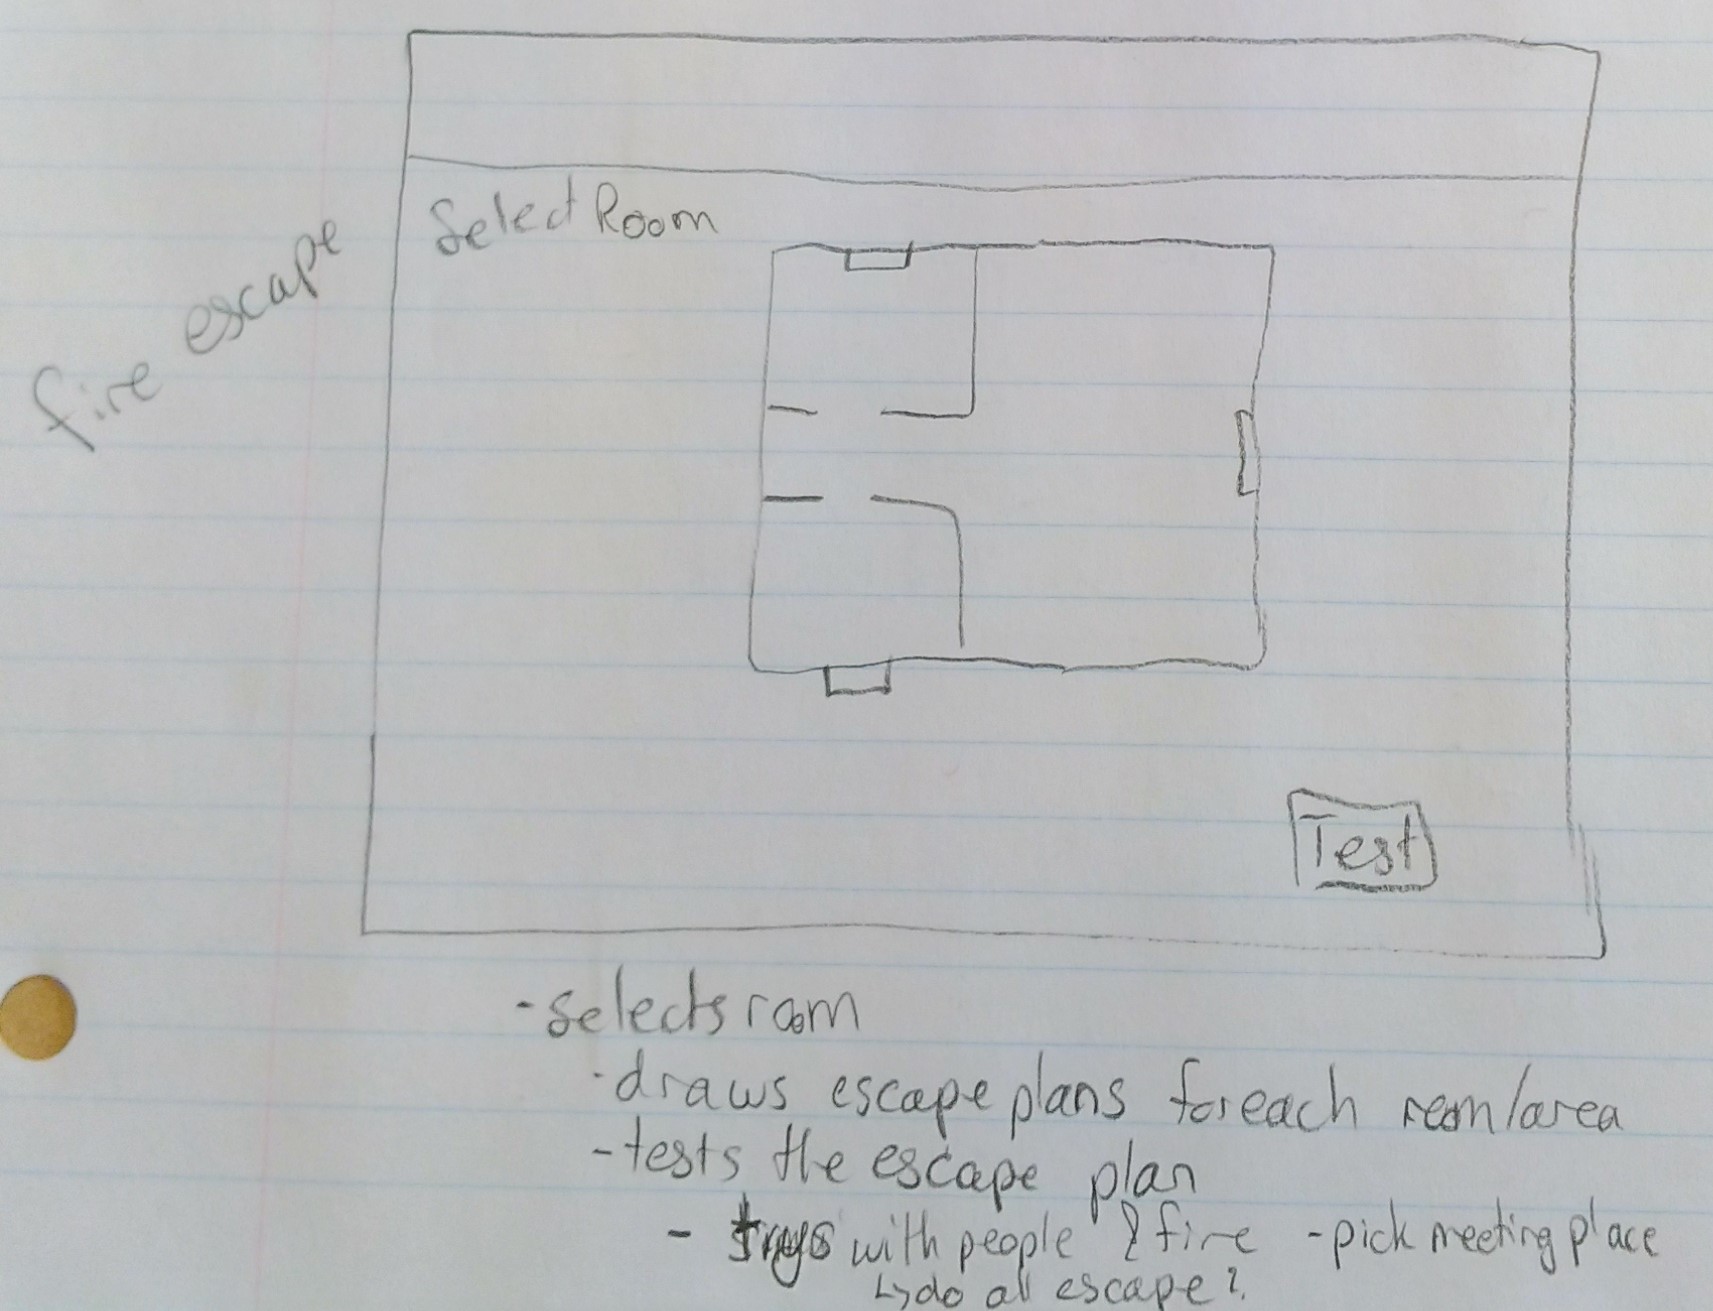 fire escape
Select Room
Test
- selects room
- draws escape plans for each room/area
- tests the escape plan
- trys with people & fire - pick meeting place
↳ do all escape?